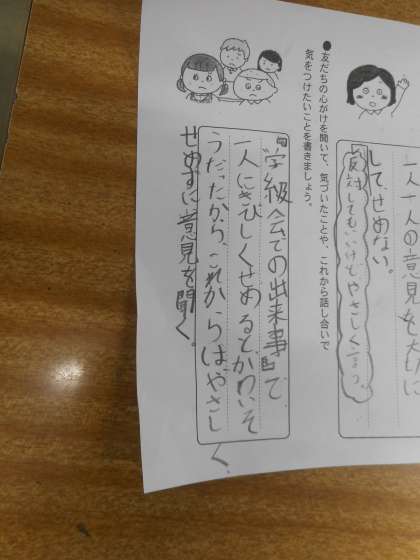 一人一人の意見を大切に
して、せめない。
反対してもいいけど、やさしく言う。
●友だちの心がけを聞いて、気づいたことや、これから話し合いで
気をつけたいことを書きましょう。
『学級会での出来事』で、
一人にきびしくせめるとかわいそ
うだったから、これからはやさしく、
せめずに意見を聞く。